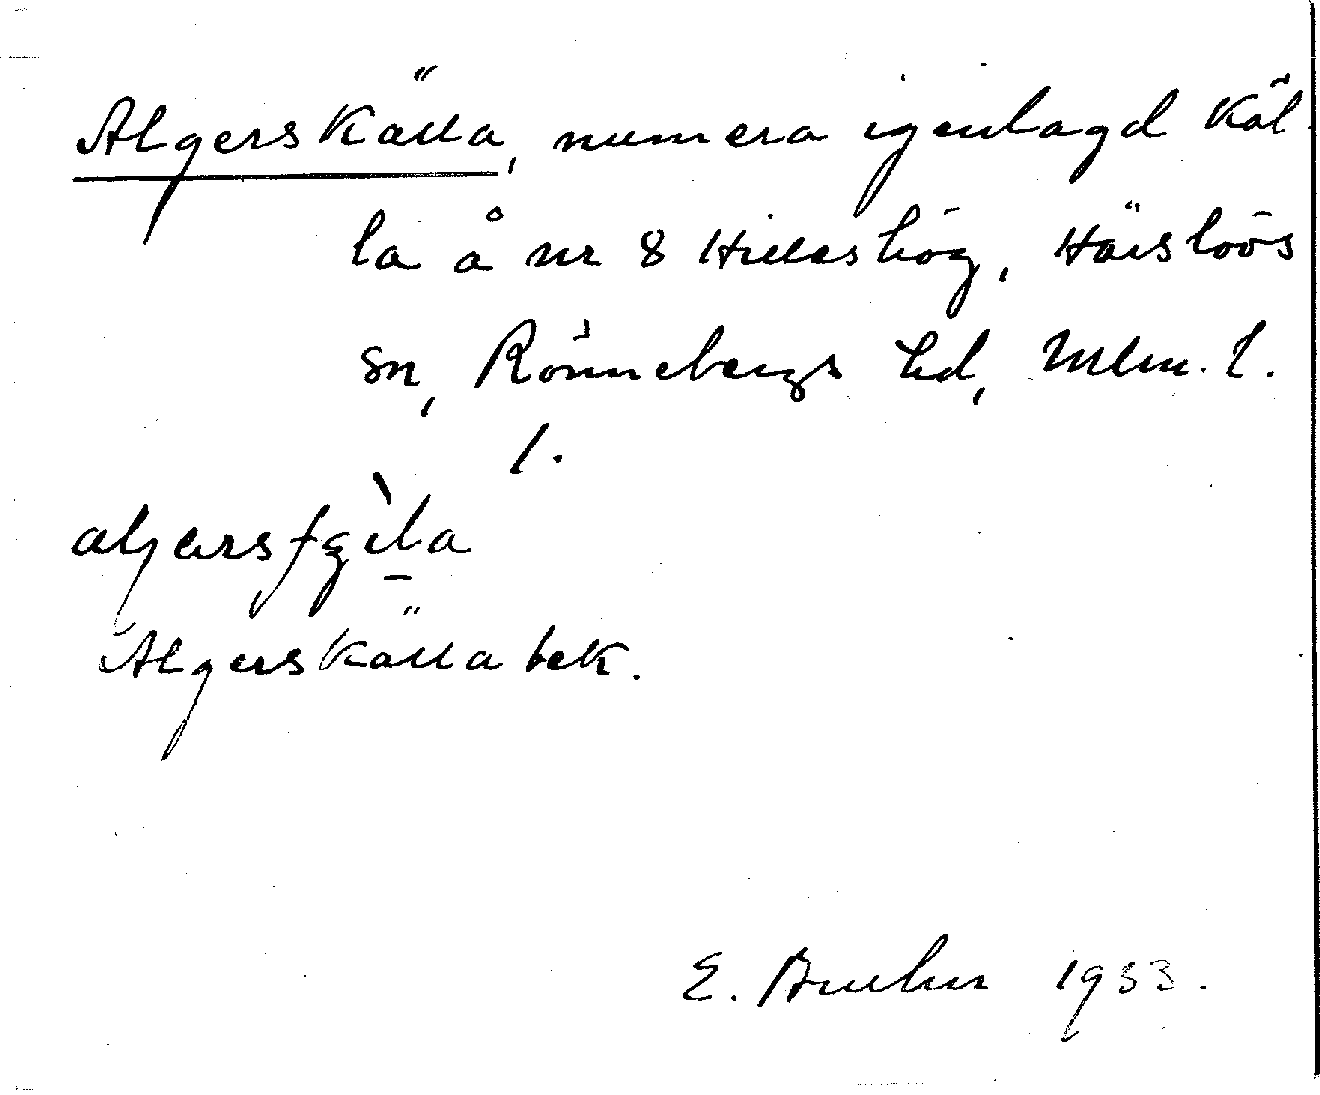 Algerskälla, numera igenlagd käl-
la å nr 8 Hilleshög, Härslövs
sn, Rönnebergs hd, Mlm. l.
1.
Algerskälla bek.
E. 1933.